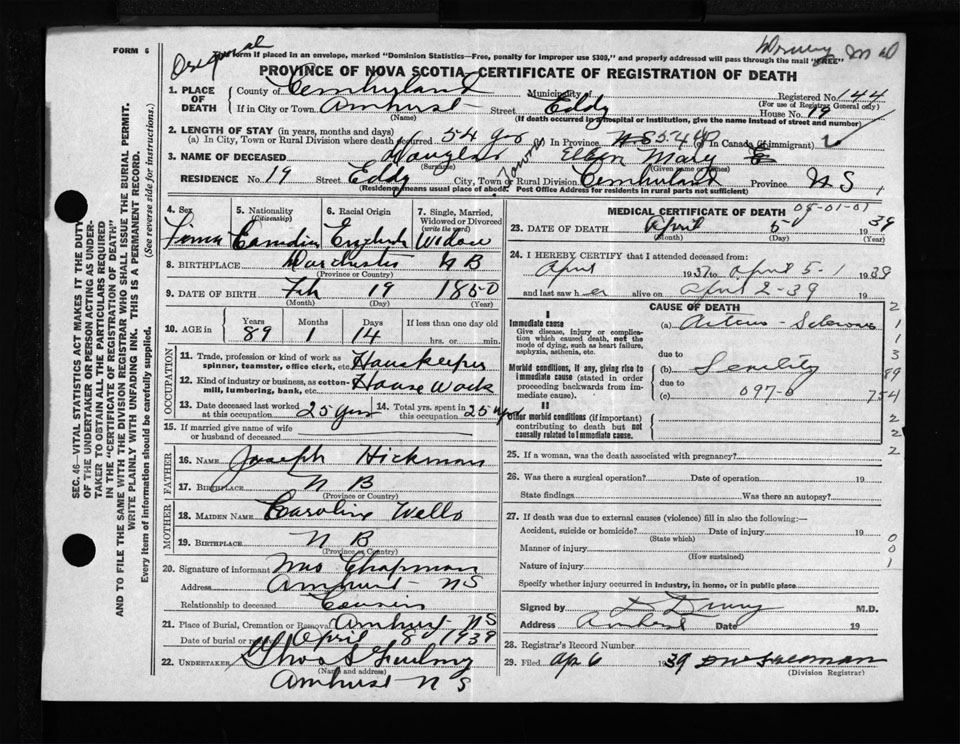 FORM 6
Original
form if placed in an envelope, marked "Dominion Statistics—Free, penalty for improper use $300," and properly addressed will pass through the mail "FREE"
Drury M D
PROVINCE OF NOVA SCOTIA—CERTIFICATE OF REGISTRATION OF DEATH
1. PLACE OF DEATH County of Cumberland Municipality of Registered No. 144
(For use of Registrar General only)
If in City or Town Amherst Street Eddy House No. 19
(Name) (If death occurred in a hospital or institution, give the name instead of street and number)
2. LENGTH OF STAY (in years, months and days)
(a) In City, Town or Rural Division where death occurred 54 yrs (b) In Province (c) In Canada (if immigrant)
3. NAME OF DECEASED Douglas Ellen Mary
(Surname) (Given name or names)
RESIDENCE No. 19 Street Eddy City, Town or Rural Division Cumberland Province N S
(Residence means usual place of abode. Post Office Address for residents in rural parts not sufficient)
4. Sex 5. Nationality (Citizenship) 6. Racial Origin 7. Single, Married, Widowed or Divorced (write the word)
Canadian English Widow
8. BIRTHPLACE Dorchester N B
(Province or Country)
9. DATE OF BIRTH Feb 19 1850
(Month) (Day) (Year)
10. AGE in Years Months Days If less than one day old
89 1 14 hrs. or min.
OCCUPATION
11. Trade, profession or kind of work as spinner, teamster, office clerk, etc. Housekeeper
12. Kind of industry or business, as cotton-mill, lumbering, bank, etc. House Work
13. Date deceased last worked at this occupation 25 yrs 14. Total yrs. spent in this occupation 25 yrs
15. If married give name of wife or husband of deceased
FATHER
16. NAME Joseph Hickman
17. BIRTHPLACE N B
(Province or Country)
MOTHER
18. MAIDEN NAME Caroline Wells
19. BIRTHPLACE N B
(Province or Country)
20. Signature of informant Mrs Chapman
Address Amherst N S
Relationship to deceased Cousin
21. Place of Burial, Cremation or Removal Amherst N S
Date of burial or removal April 8 1939
22. UNDERTAKER Thos S
(Name and address)
Amherst N S
MEDICAL CERTIFICATE OF DEATH 09-01-01
23. DATE OF DEATH April 5 1939
(Month) (Day) (Year)
24. I HEREBY CERTIFY that I attended deceased from
April 1937 to April 5 1939
and last saw her alive on April 2-39 19
CAUSE OF DEATH
I
Immediate cause (a) Arterio Sclerosis
Give disease, injury or complication which caused death, not the mode of dying, such as heart failure, asphyxia, asthenia, etc.
due to
Morbid conditions, if any, giving rise to immediate cause (stated in order proceeding backwards from immediate cause). (b) Senility
due to
(c) 097-0
II
Other morbid conditions (if important) contributing to death but not causally related to immediate cause.
2
1
1
3
89
754
2
2
2
25. If a woman, was the death associated with pregnancy?
26. Was there a surgical operation? Date of operation 19
State findings Was there an autopsy?
27. If death was due to external causes (violence) fill in also the following:—
Accident, suicide or homicide? Date of injury 19
(State which)
Manner of injury
(How sustained)
Nature of injury
Specify whether injury occurred in industry, in home, or in public place
0
0
1
Signed by D Drury M.D.
Address Amherst Date 19
28. Registrar's Record Number
29. Filed Ap 6 1939
(Division Registrar)
SEC. 46—VITAL STATISTICS ACT MAKES IT THE DUTY
OF THE UNDERTAKER OR PERSON ACTING AS UNDER-
TAKER TO OBTAIN ALL THE PARTICULARS REQUIRED
IN THE "CERTIFICATE OF REGISTRATION OF DEATH"
AND TO FILE THE SAME WITH THE DIVISION REGISTRAR WHO SHALL ISSUE THE BURIAL PERMIT.
WRITE PLAINLY WITH UNFADING INK. THIS IS A PERMANENT RECORD.
Every item of information should be carefully supplied. (See reverse side for instructions.)